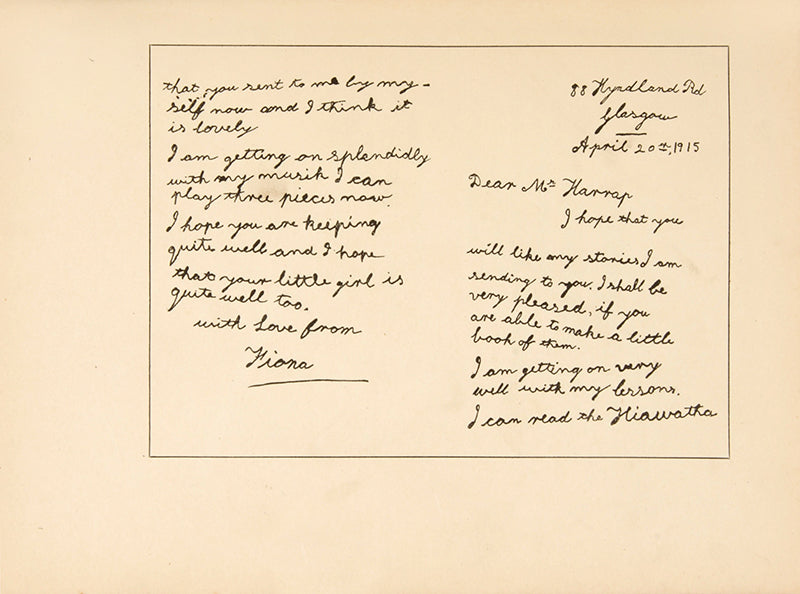 88 Hyndland Rd
Glasgow
April 20th, 1915
Dear Mr Harrap
I hope that you
will like my stories I am
sending to you. I shall be
very pleased, if you
are able to make a little
book of them.
I am getting on very
well with my lessons.
I can read the Hiawatha
that you sent to me by my-
self now and I think it
is lovely
I am getting on splendidly
with my musik I can
play three pieces now.
I hope you are keeping
quite well and I hope
that your little girl is
quite well too.
with Love from
Fiona